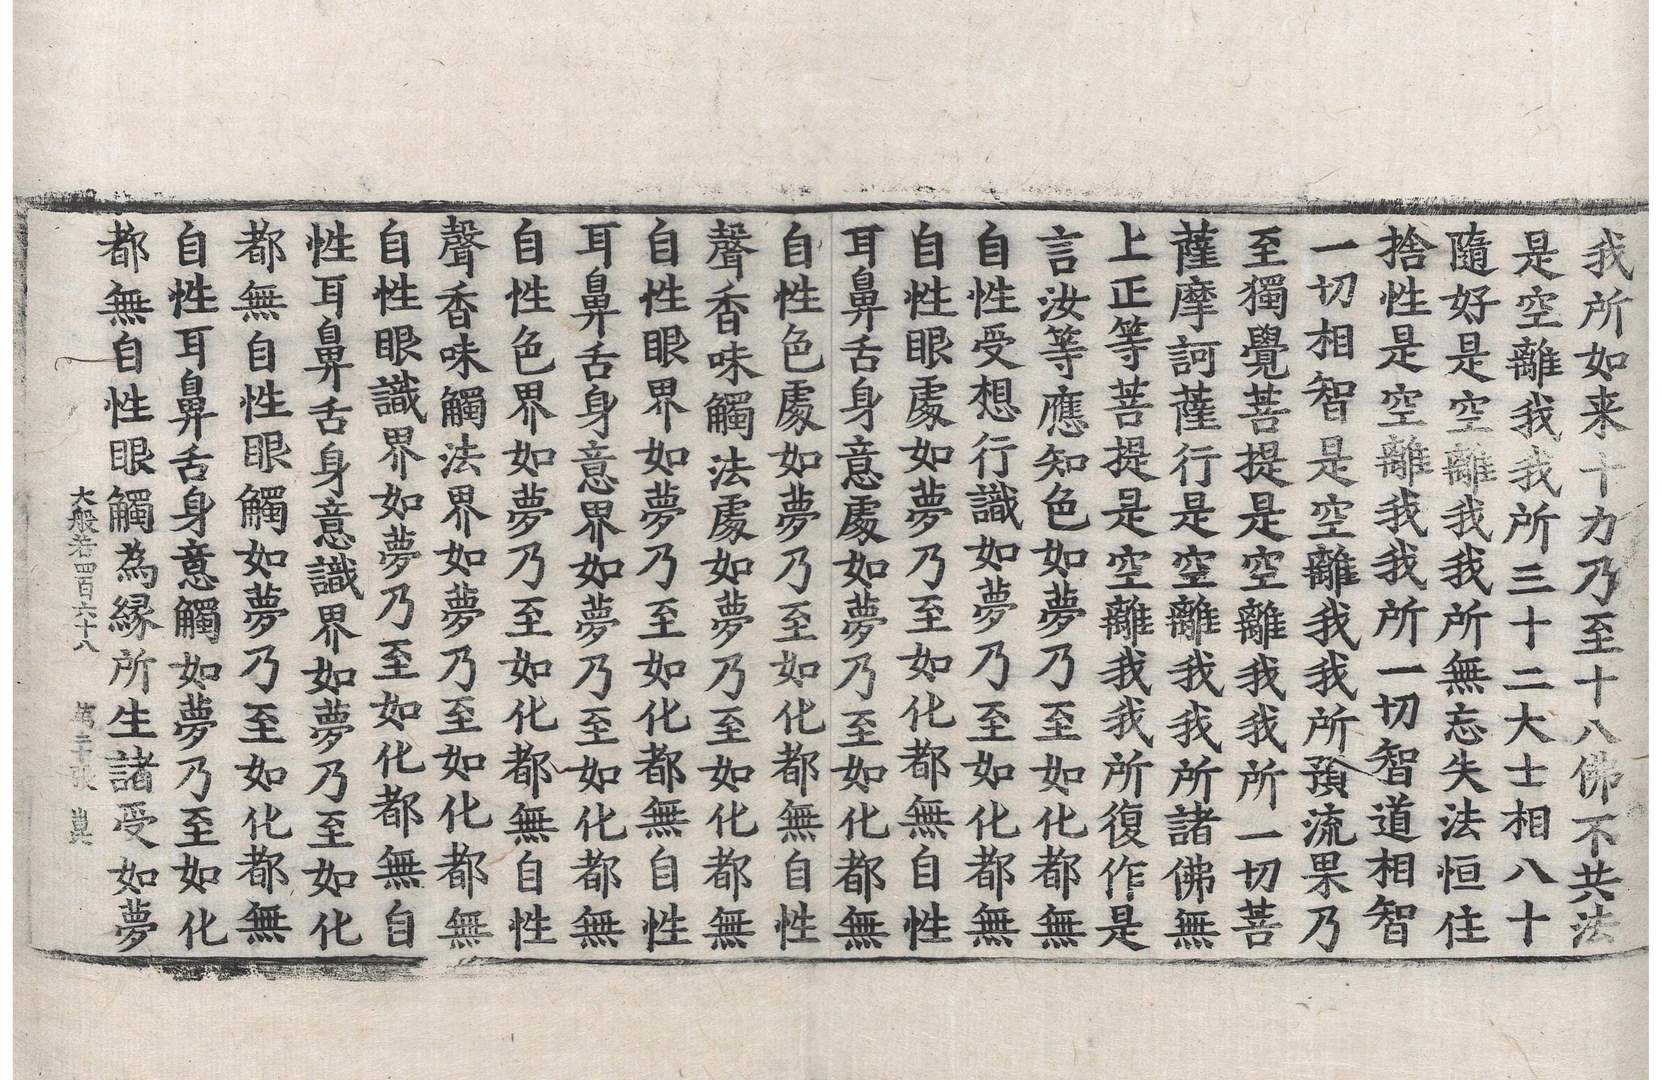 我所如来十力乃至十八佛不共法
是空離我我所三十二大士相八十
隨好是空離我我所無忘失法恒住
捨性是空離我我所一切智道相智
一切相智是空離我我所預流果乃
至獨覺菩提是空離我我所一切菩
薩摩訶薩行是空離我我所諸佛無
上正等菩提是空離我我所復作是
言汝等應知色如夢乃至如化都無
自性受想行識如夢乃至如化都無
自性眼處如夢乃至如化都無自性
耳鼻舌身意處如夢乃至如化都無
自性色處如夢乃至如化都無自性
聲香味觸法處如夢乃至如化都無
自性眼界如夢乃至如化都無自性
耳鼻舌身意界如夢乃至如化都無
自性色界如夢乃至如化都無自性
聲香味觸法界如夢乃至如化都無
自性眼識界如夢乃至如化都無自
性耳鼻舌身意識界如夢乃至如化
都無自性眼觸如夢乃至如化都無
自性耳鼻舌身意觸如夢乃至如化
都無自性眼觸為縁所生諸受如夢
大般若四百六十八 張